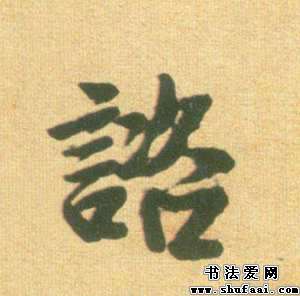 諮
书法爱网
www.shufaai.com